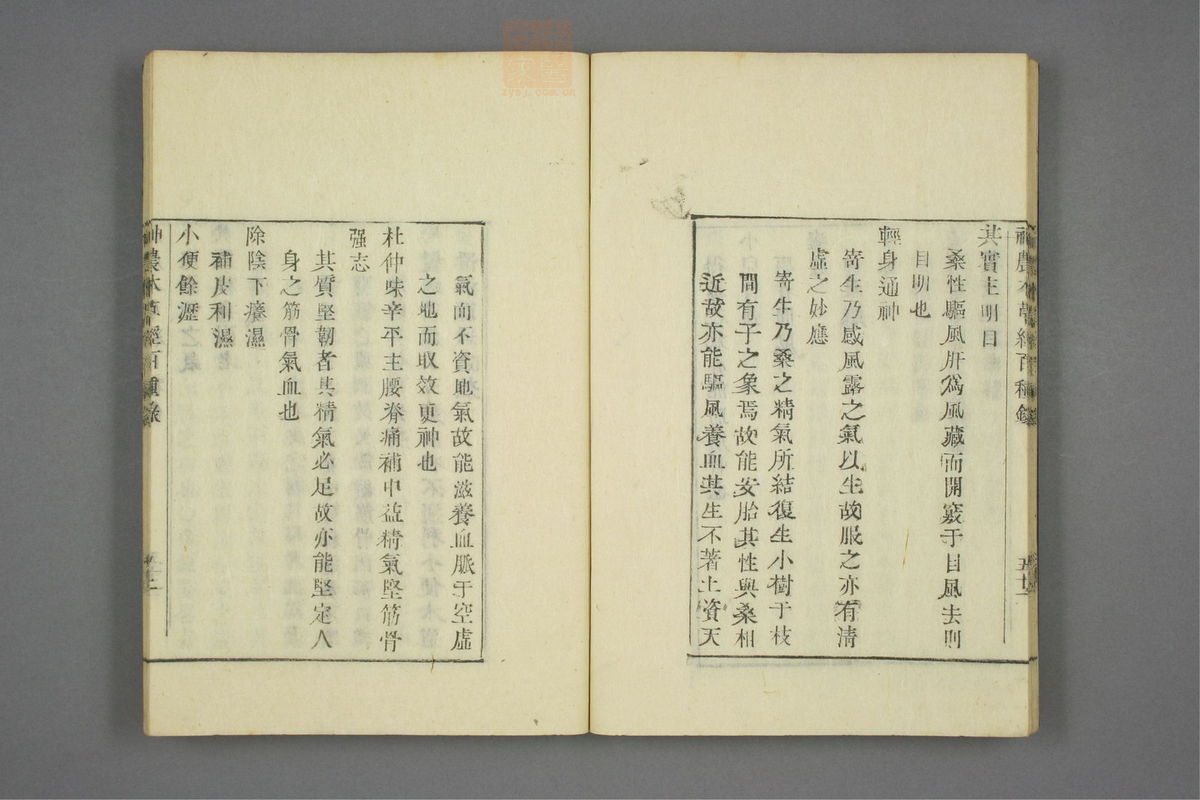 其實主明目
桑性驅風肝為風藏而開竅于目風去則
目明也
輕身通神
寄生乃感風露之氣以生故服之亦有清
虛之妙應
寄生乃桑之精氣所結復生小樹于枝
間有子之象焉故能安胎其性與桑相
近故亦能驅風養血其生不著土資天
氣而不資地氣故能滋養血脈于空虛
之地而取效更神也
杜仲味辛平主腰脊痛補中益精氣堅筋骨
强志
其質堅韌者其精氣必足故亦能堅定人
身之筋骨氣血也
除陰下癢濕
補皮利濕
小便餘瀝
神農本草經百種錄
zysj.com.cn